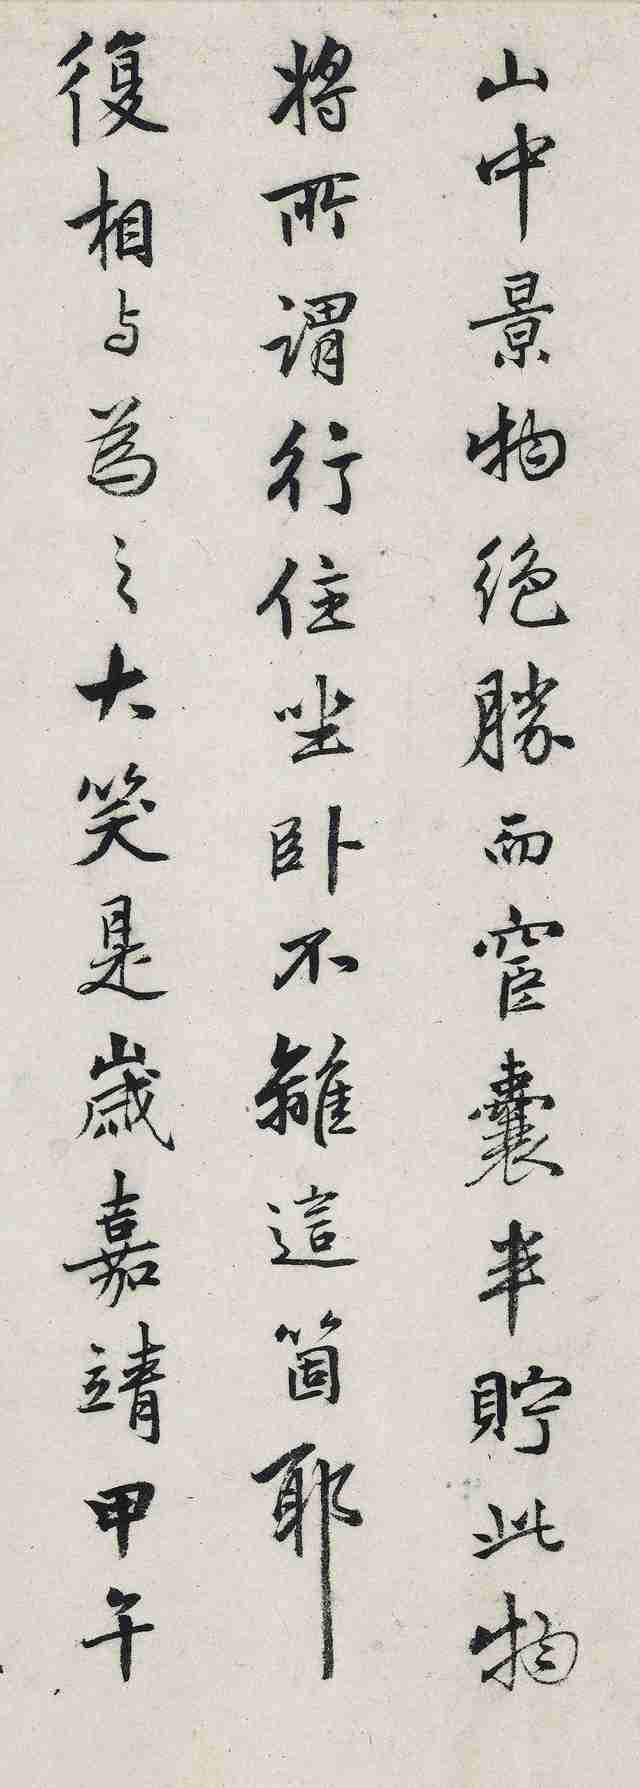 山中景物絕勝而宦囊半貯此物
將所謂行住坐臥不離這箇耶
復相与為之大笑是歲嘉靖甲午